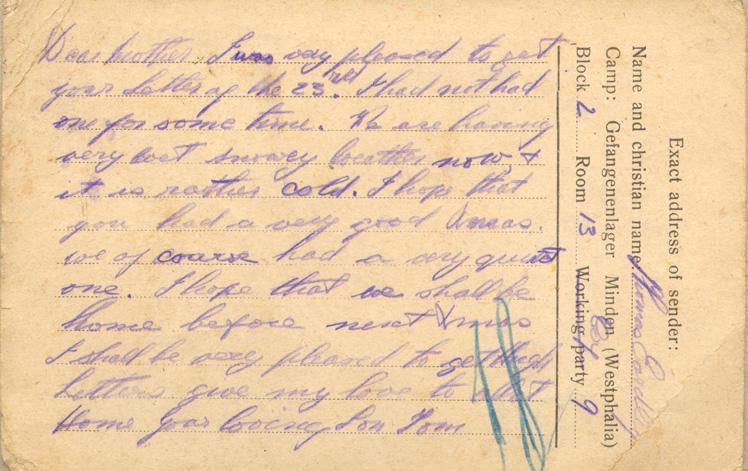 Dear Mother, I was very pleased to get
your Letter of the 23rd. I had not had
one for some time. We are having
very wet snowey weather now, &
it is rather cold. I hope that
you had a very good Xmas.
we of course had a very quiet
one. I hope that we shall be
home before next Xmas
I shall be very pleased to get
Letters give my love to all at
Home Your loving Son Tom
Exact address of sender:
Name and christian name: Thomas
Camp: Gefangenenlager Minden (Westphalia)
Block 2 Room 13 Working party 9